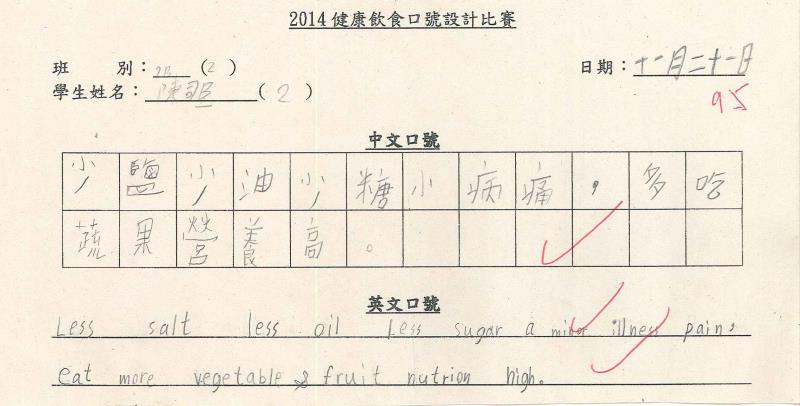 2014 健康飲食口號設計比賽
班 別： 2B (2)
日期：十一月二十一日
學生姓名： 陳 (2)
95
中文口號
少鹽少油少糖小病痛，多吃
蔬果營養高。
英文口號
Less salt less oil Less sugar a minor illness pain,
eat more vegetable & fruit nutrion high.